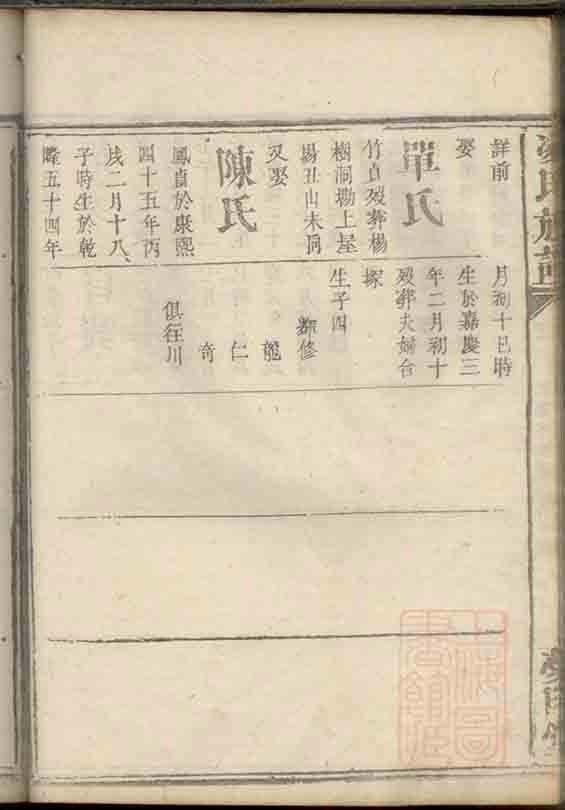 詳前
娶
單氏
竹貞歿葬楊
樹洞坳上屋
場丑山未向
又娶
陳氏
鳳貞於康熙
四十五年丙
戌二月十八
子時生於乾
隆五十四年
月初十巳時
生於嘉慶三
年二月初十
歿葬夫婦合
塚
生子四
修
龍
仁
奇
俱徃川
氏族譜